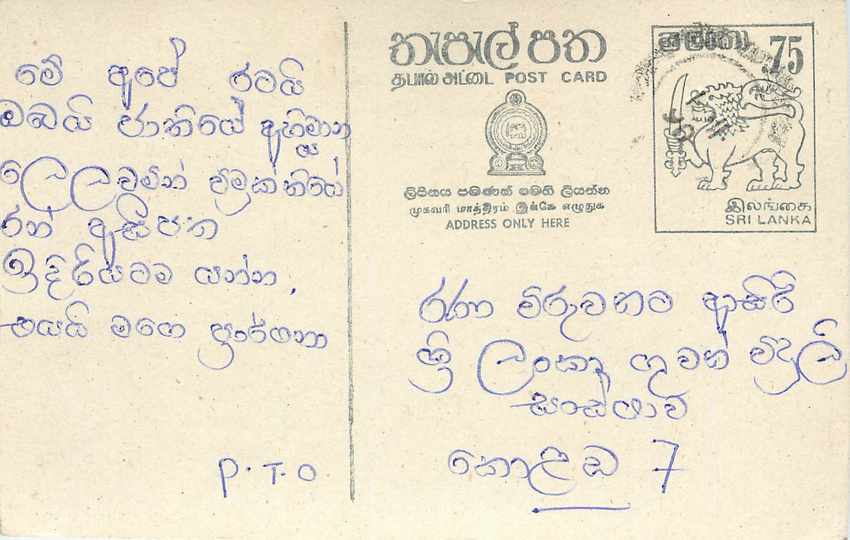 මේ අපේ රටයි
ඔබයි ජාතියේ අභිමාන
ය
ලෙලවමින් විමුක්තියේ
රන් අසිපත
ඉදිරියටම යන්න,
එයයි මගෙ ප්‍රාර්ථනා
P.T.O
තැපැල් පත
தபால் அட்டை POST CARD
ලිපිනය පමණක් මෙහි ලියන්න
முகவரி மாத்திரம் இங்கே எழுதுக
ADDRESS ONLY HERE
ශ්‍රී ලංකා 75
இலங்கை
SRI LANKA
රණ විරුවනට ආසිරි
ශ්‍රී ලංකා ගුවන් විදුලි
සංස්ථාව
කොළඹ 7